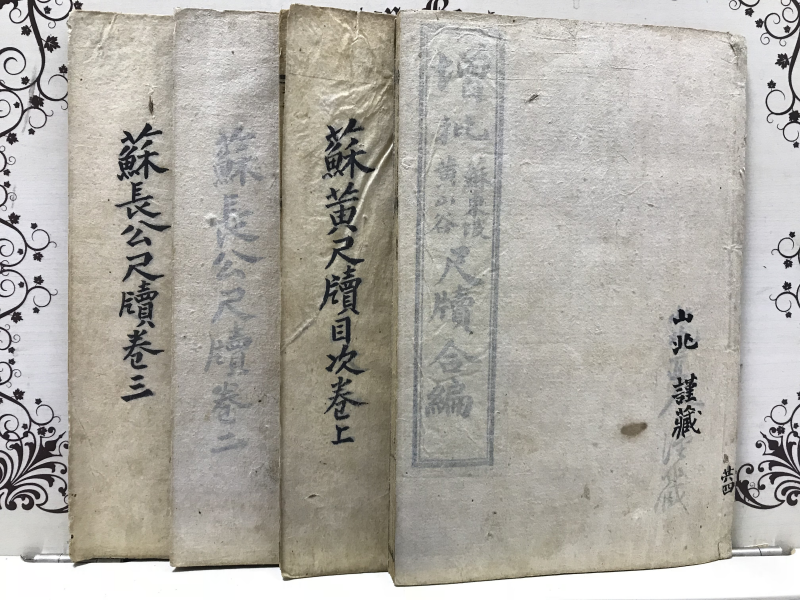 增批
蘇東坡
黃山谷
尺牘合編
山北 謹藏
共四
蘇黃尺牘目次卷上
蘇長公尺牘卷二
蘇長公尺牘卷三